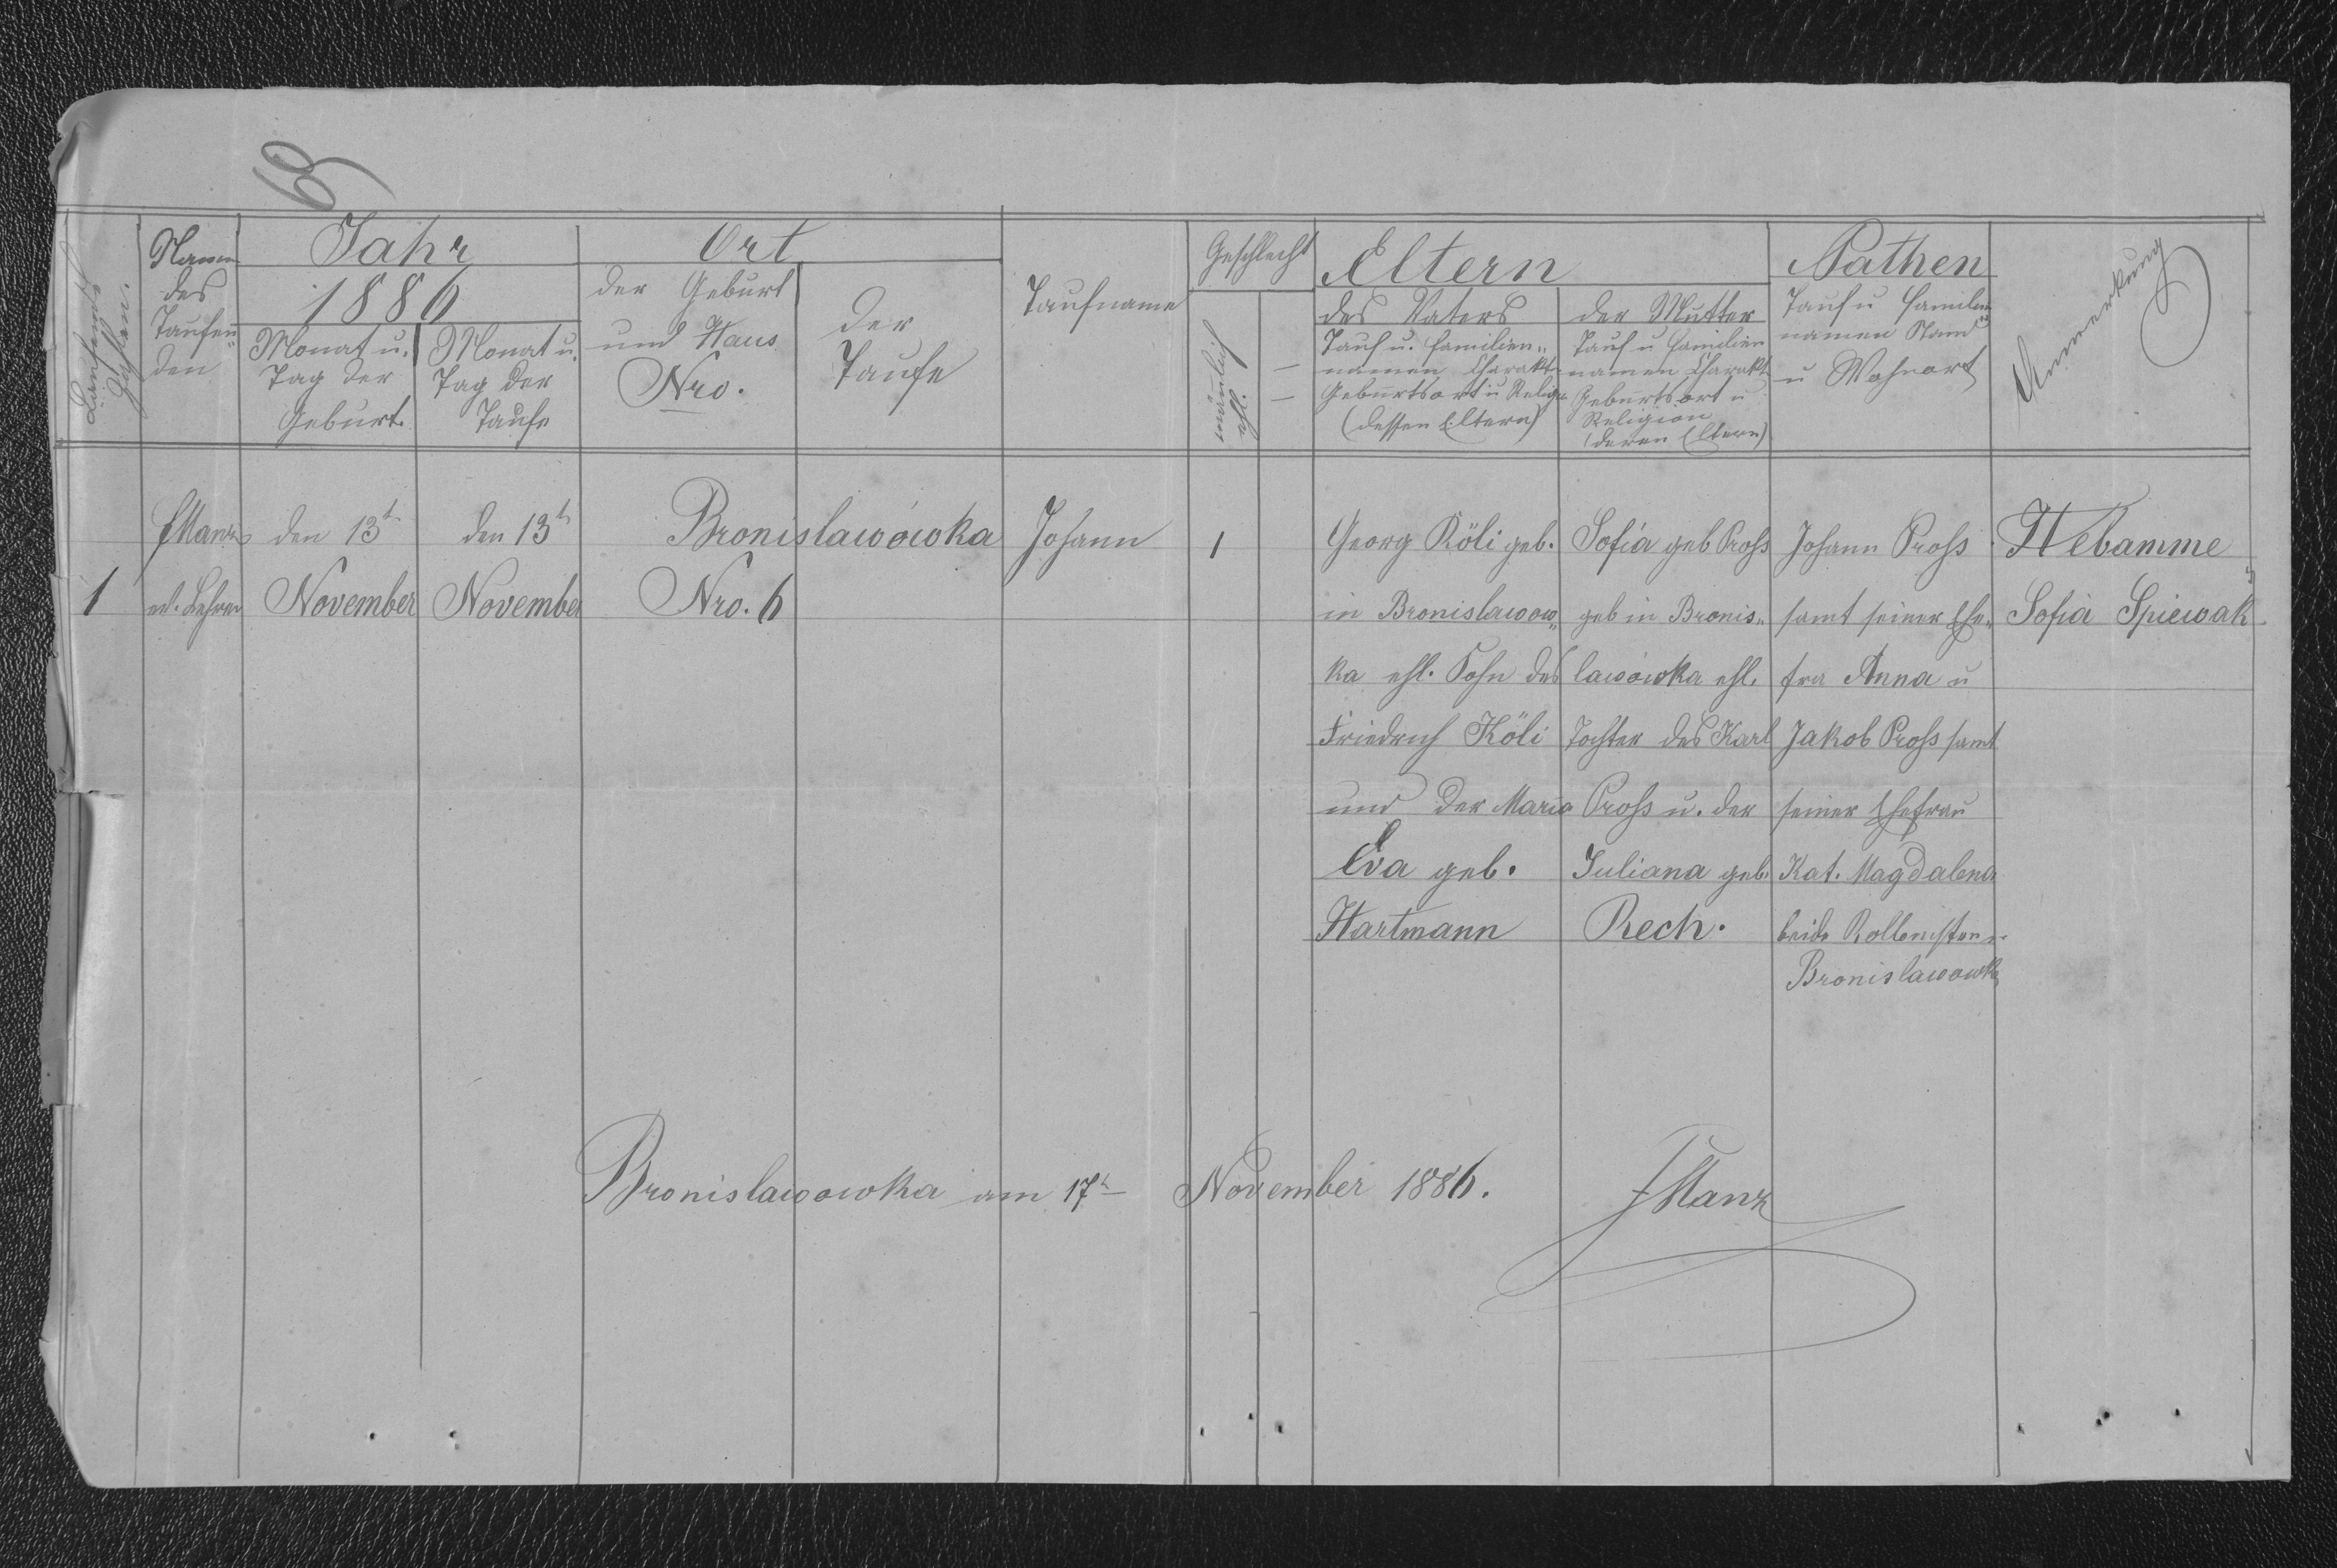 Laufende Zahlen.
Namen des Taufenden
Jahr
1886
Monat u. Tag der Geburt.
Monat u. Tag der Taufe
Ort
der Geburt und Haus Nro.
der Taufe
Taufname
Geschlecht
männlich
ehl.
Eltern
des Vaters
Tauf u. Familien„
namen Charakt.
Geburtsort u Relig.
(dessen Eltern)
der Mutter
Tauf u Familien
namen Charakt
Geburtsort u
Religion
(deren Eltern)
Pathen
Tauf u Familien
namen Stand
u Wohnort
Anmerkung
1
JManz
ev. Lehrer
den 13t
November
den 13t
November
Bronislawówka
Nro. 6
Johann
1
Georg Köli geb.
in Bronislawow„
ka ehl. Sohn des
Friedrich Köli
und der Maria
Eva geb.
Hartmann
Sofia geb Pross
geb in Bronis„
lawówka ehl.
Tochter des Karl
Pross u. der
Juliana geb.
Rech.
Johann Pross
samt seiner Ehe„
fra Anna u
Jakob Pross samt
seiner Ehefrau
Kat. Magdalena
beide
Bronislawowka
Hebamme
Sofia Spiewak
Bronislawowka am 17t November 1886.
JManz